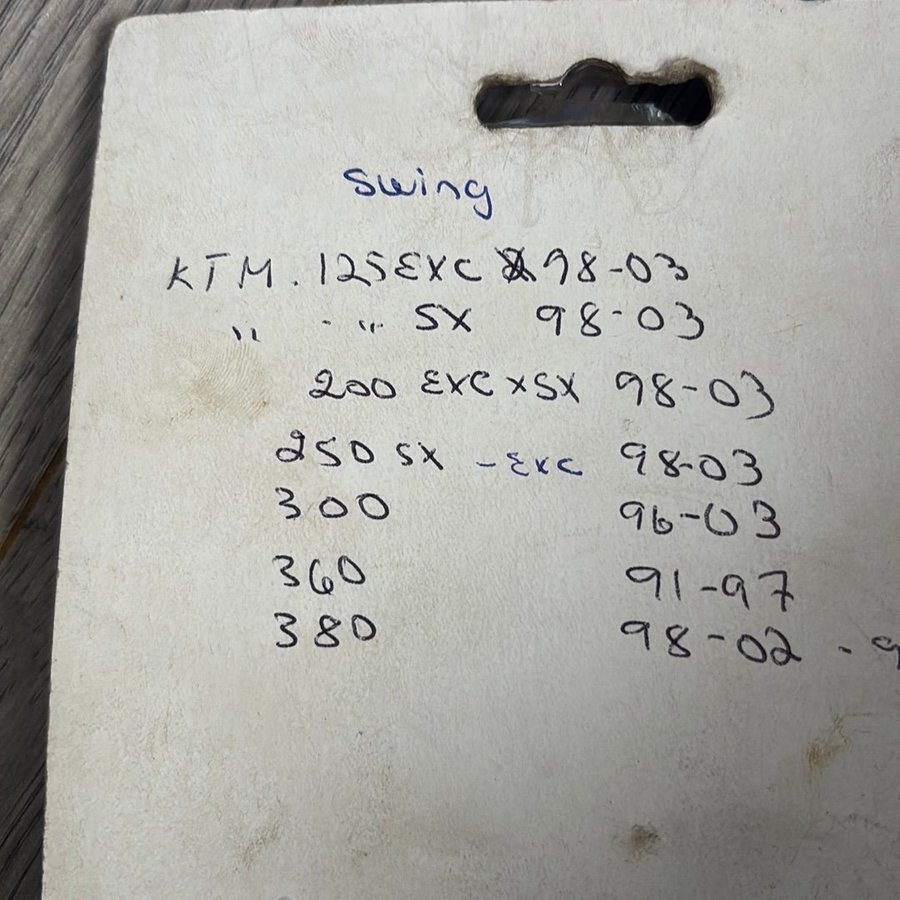 swing
KTM. 125 EXC 98-03
" - " SX 98-03
200 EXC x SX 98-03
250 SX - EXC 98-03
300 96-03
360 91-97
380 98-02 -